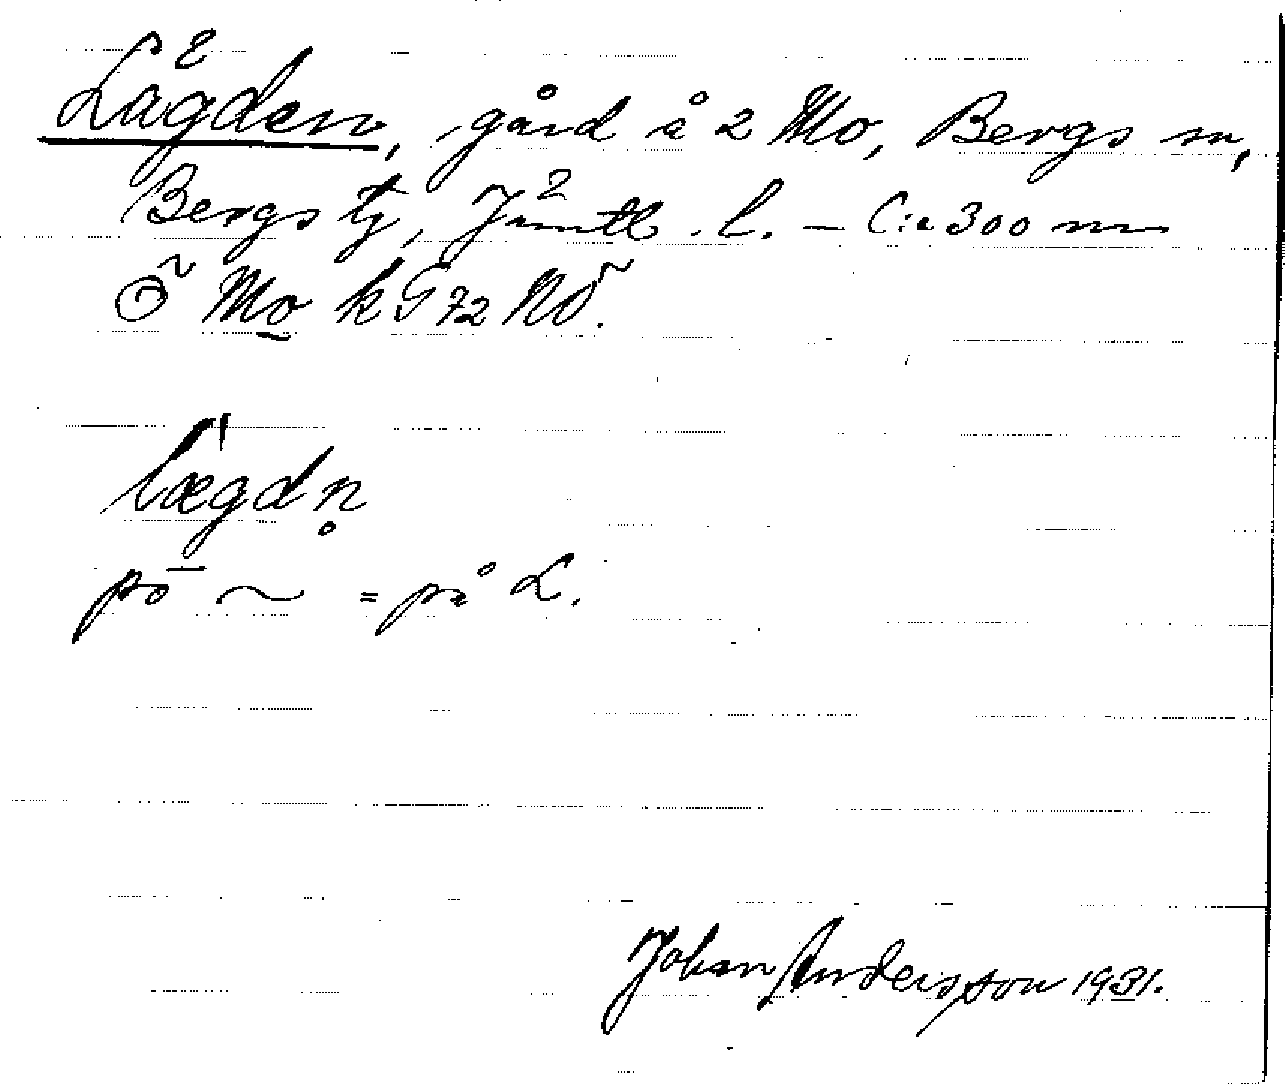 Lägden, gård å 2 Mo, Bergs sn,
Bergs tg, Jämtl. l. – C:a 300 m
Ö Mo k G 72 NÖ.
lægdn̥
pō ~ = på L.
Johan Andersson 1931.